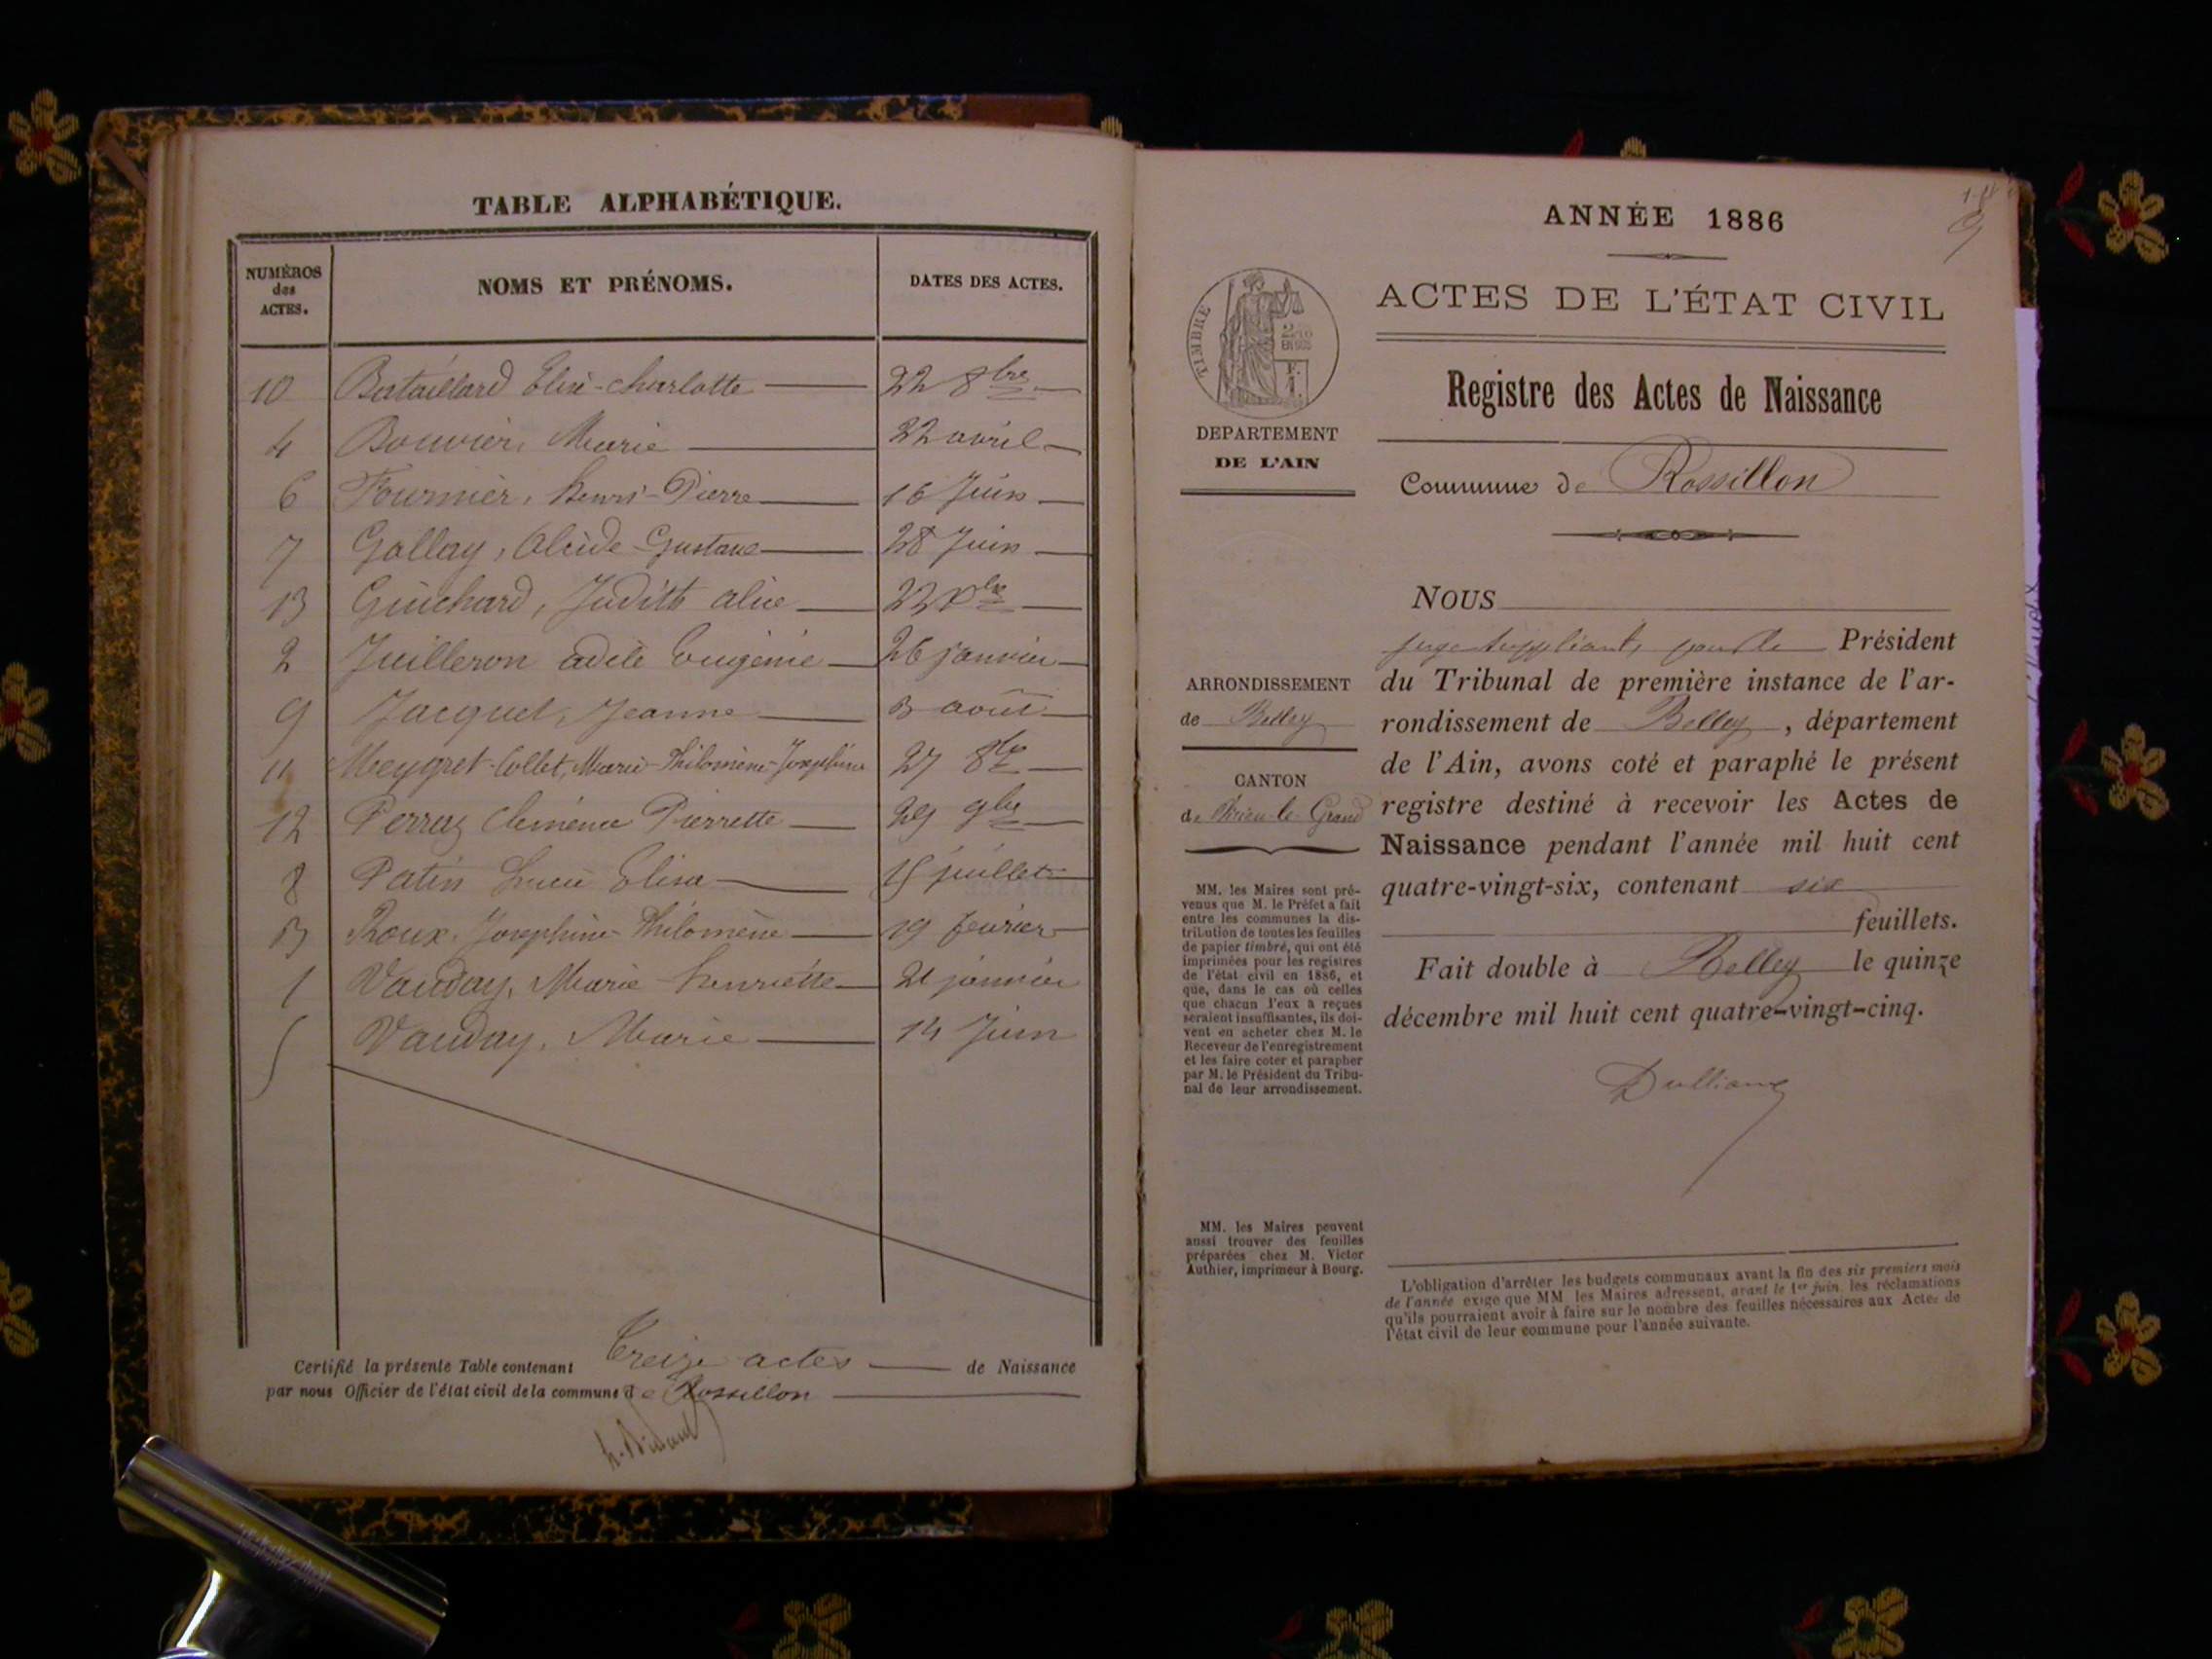 TABLE ALPHABÉTIQUE.
NUMÉROS
des
ACTES.
NOMS ET PRÉNOMS.
DATES DES ACTES.
10 Bataillard Elisé-charlotte 22 8bre
4 Bouvier, Marie 22 avril
6 Fournier, henri-Pierre 16 Juin
7 Gallay, Alcide Gustave 28 Juin
13 Guichard, Judith alice 22 Xbre
2 Juilleron adèle Eugénie 26 janvier
9 Jacquet, Jeanne 3 août
11 Meygret-Collet, Marie-Philomène-Joséphine 27 8bre
12 Perraz Clémence Pierrette 29 9bre
8 Patin Lucie Elisa 15 juillet
3 Roux, Joséphine Philomène 19 février
1 Vauday, Marie henriette 21 janvier
5 Vauday, Marie 14 Juin
Certifié la présente Table contenant Treize actes de Naissance
par nous Officier de l'état civil de la commune de Rossillon
ANNÉE 1886
ACTES DE L'ÉTAT CIVIL
TIMBRE
Registre des Actes de Naissance
DEPARTEMENT
DE L'AIN
Commune de Rossillon
NOUS
juge suppléant, pour le Président
du Tribunal de première instance de l'ar-
rondissement de Belley, département
de l'Ain, avons coté et paraphé le présent
registre destiné à recevoir les Actes de
Naissance pendant l'année mil huit cent
quatre-vingt-six, contenant six
feuillets.
Fait double à Belley le quinze
décembre mil huit cent quatre-vingt-cinq.
ARRONDISSEMENT
de Belley
CANTON
de Virieu-le-Grand
MM. les Maires sont pré-
venus que M. le Préfet a fait
entre les communes la dis-
tribution de toutes les feuilles
de papier timbré, qui ont été
imprimées pour les registres
de l'état civil en 1886, et
que, dans le cas où celles
que chacun d'eux a reçues
seraient insuffisantes, ils doi-
vent en acheter chez M. le
Receveur de l'enregistrement
et les faire coter et parapher
par M. le Président du Tribu-
nal de leur arrondissement.
MM. les Maires peuvent
aussi trouver des feuilles
préparées chez M. Victor
Authier, imprimeur à Bourg.
L'obligation d'arrêter les budgets communaux avant la fin des six premiers mois
de l'année exige que MM les Maires adressent, avant le 1er juin, les réclamations
qu'ils pourraient avoir à faire sur le nombre des feuilles nécessaires aux Actes de
l'état civil de leur commune pour l'année suivante.